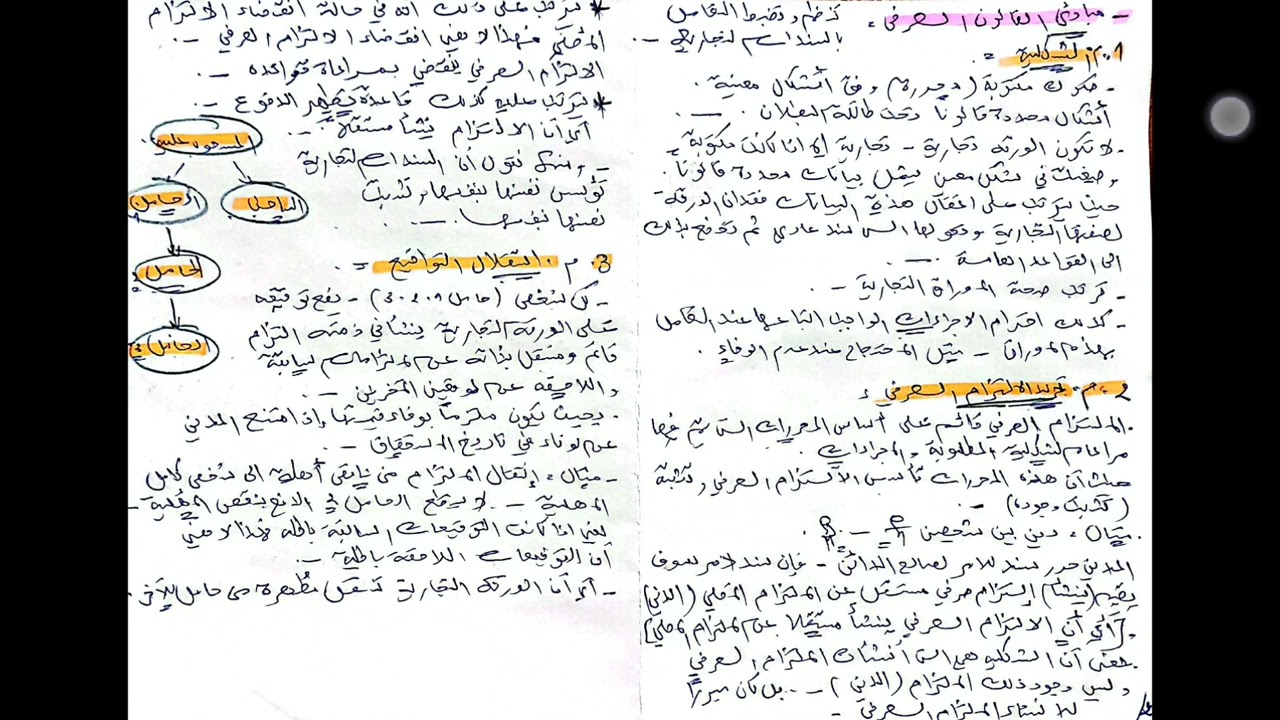 - مبادئ القانون الصرفي : تنظم وتضبط التعامل
بالسندات التجارية -.
1. م. الشكلية :
- صكوك مكتوبة (محررة) وفق أشكال معينة.
أشكال محددة قانونا وتحت طائلة البطلان -.
- لا تكون الورقة تجارية - تجارية إلا إذا كانت مكتوبة
وصيغت في شكل معين يشمل بيانات محددة قانونا.
حيث يترتب على إغفال هذه البيانات فقدان الورقة
لصفتها التجارية وتحولها إلى سند عادي ثم تخضع بذلك
إلى القواعد العامة -.
- ترتب صحة الأوراق التجارية -.
- كذلك احترام الإجراءات الواجب اتباعها عند التعامل
بهذه الأوراق - مثل الاحتجاج عند عدم الوفاء.
2. م. تجريد الالتزام الصرفي :
. الالتزام الصرفي قائم على أساس المحررات التي تم فيها
مراعاة الشكلية المطلوبة والإجراءات.
حيث أن هذه المحررات تأسس الالتزام الصرفي وتثبته
(تثبت وجوده) -
. مثال : دين بين شخصين
المدين حرر سند لأمر لصالح الدائن - فإن سند لأمر سوف
يقيم (ينشأ) إلتزام صرفي مستقل عن الالتزام الأصلي (الدين)
. [أي أن الالتزام الصرفي ينشأ مستقلا عن الالتزام الأصلي]
. بمعنى أن الشكلية هي التي أنشأت الالتزام الصرفي
وليس وجود ذلك الالتزام (الدين) - .. بل كان مبررا
لإنشاء الالتزام الصرفي -
* يترتب على ذلك أنه في حالة انقضاء الالتزام
الأصلي فهذا لا يعني انقضاء الالتزام الصرفي -.
الالتزام الصرفي ينقضي بمراعاة قواعده -.
* يترتب عليه كذلك قاعدة تطهير الدفوع -.
أي أن الالتزام ينشأ مستقلا -.
- ومنه نقول أن السندات التجارية
تؤسس نفسها بنفسها وتثبت
نفسها بنفسها. -.
المسحوب عليه
الساحب
الحامل 1
الحامل 2
الحامل 3
3. م. استقلال التواقيع :
- كل شخص (حامل 1. 2. 3) - يضع توقيعه
على الورقة التجارية ينشأ في ذمته التزام
قائم ومستقل بذاته عن الالتزامات السابقة
واللاحقة عن الموقعين الآخرين -.
. بحيث يكون ملزما بوفاء قيمتها إذا امتنع المدين
عن الوفاء في تاريخ الاستحقاق -.
- مثال : إنتقال الالتزام من ناقص أهلية إلى شخص كامل
الأهلية - .. لا يدفع الحامل في الدفع بنقص الأهلية -
يعني إذا كانت التوقيعات السابقة باطلة فهذا لا يعني
أن التوقيعات اللاحقة باطلة -.
- أي أن الورقة التجارية تنتقل مُطهرة من حامل لآخر.